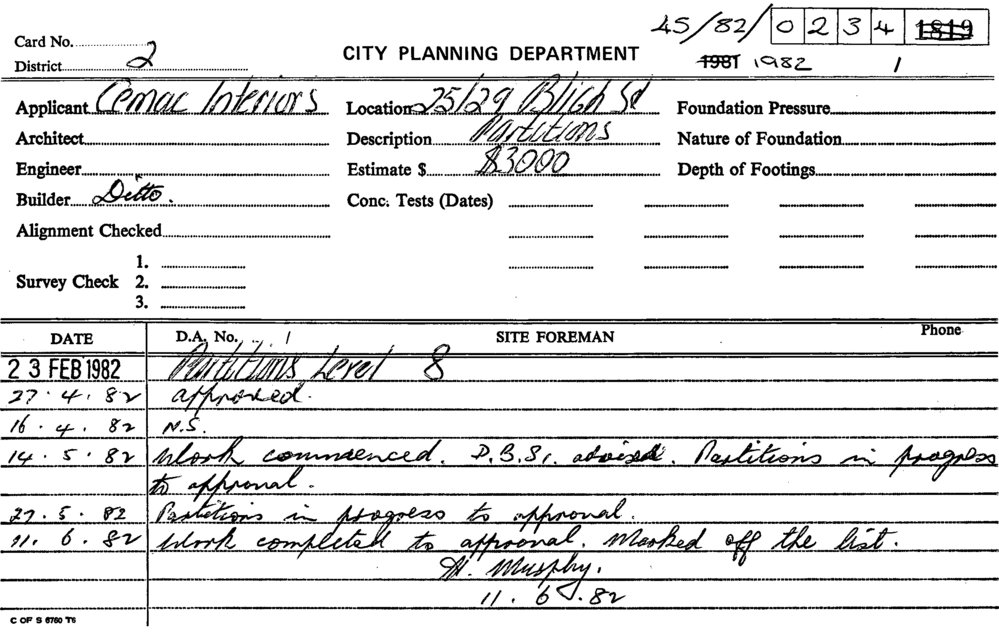 45/82/ 0 2 3 4 1819
Card No.
CITY PLANNING DEPARTMENT
1981 1982 1
District 2
Applicant Cemac Interiors Location 25/29 Bligh St Foundation Pressure
Architect Description Partitions Nature of Foundation
Engineer Estimate $ $3000 Depth of Footings
Builder Ditto. Conc. Tests (Dates)
Alignment Checked
1.
Survey Check 2.
3.
DATE D.A. No. SITE FOREMAN Phone
23 FEB 1982 Partitions Level 8
27.4.82 approved.
16.4.82 N.S.
14.5.82 Work commenced. D.B.S. advised. Partitions in progress
to approval.
27.5.82 Partitions in progress to approval.
11.6.82 Work completed to approval. Marked off the list.
Murphy.
11.6.82
C OF S 6760 T6